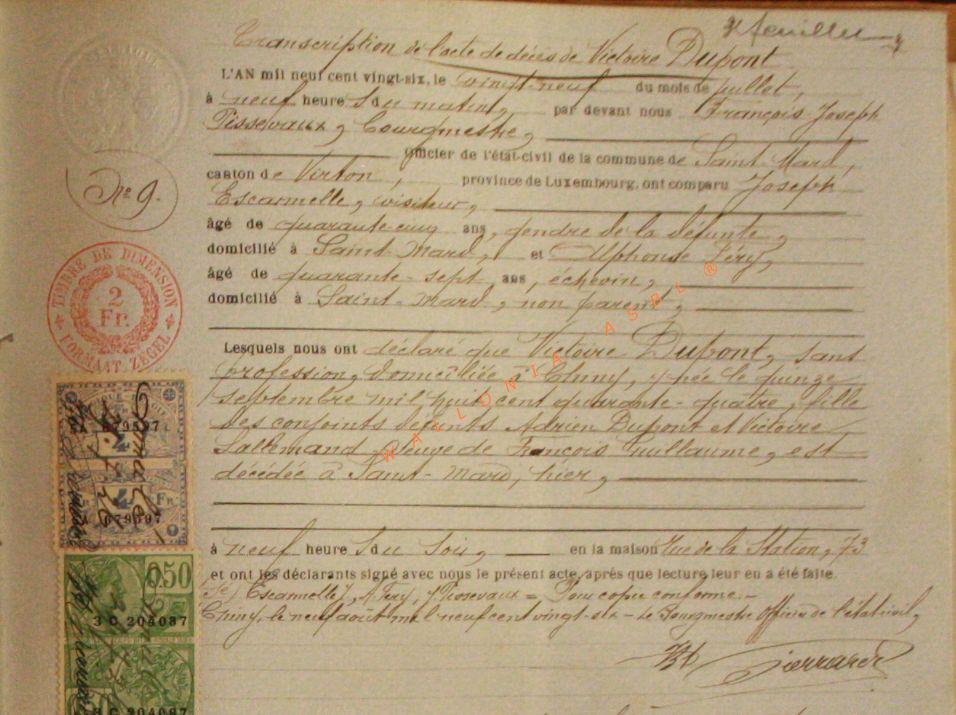 2 feuillet
Transcription de l'acte de décès de Victoire Dupont
L'AN mil neuf cent vingt-six, le vingt-neuf du mois de juillet,
à neuf heures du matin, par devant nous François Joseph
Pissevaux, Bourgmestre,
Officier de l'état-civil de la commune de Saint-Mard,
canton de Virton, province de Luxembourg, ont comparu Joseph
Escarmelle, visiteur,
âgé de quarante-cinq ans, gendre de la défunte,
domicilié à Saint-Mard, et Alphonse Féry,
âgé de quarante-sept ans, échevin,
domicilié à Saint-Mard, non parent,
Lesquels nous ont déclaré que Victoire Dupont, sans
profession, domiciliée à Chiny, y née le quinze
septembre mil huit cent quarante-quatre, fille
des conjoints défunts Adrien Dupont et Victoire
Lallemand, veuve de François Guillaume, est
décédée à Saint-Mard, hier,
à neuf heures du soir, en la maison Rue de la Station, 73
et ont les déclarants signé avec nous le présent acte, après que lecture leur en a été faite.
(Sé) Escarmelle, A. Féry, J. Pissevaux = Pour copie conforme.-
Chiny, le neuf août mil neuf cent vingt-six - Le Bourgmestre Officier de l'état civil,
N° 9.
TIMBRE DE DIMENSION
2
Fr.
FORMAAT ZEGEL
679597
4
4 Fr.
A 679597
0.50
3 C 204087
3 C 204087
WALLONIA ASBL ®